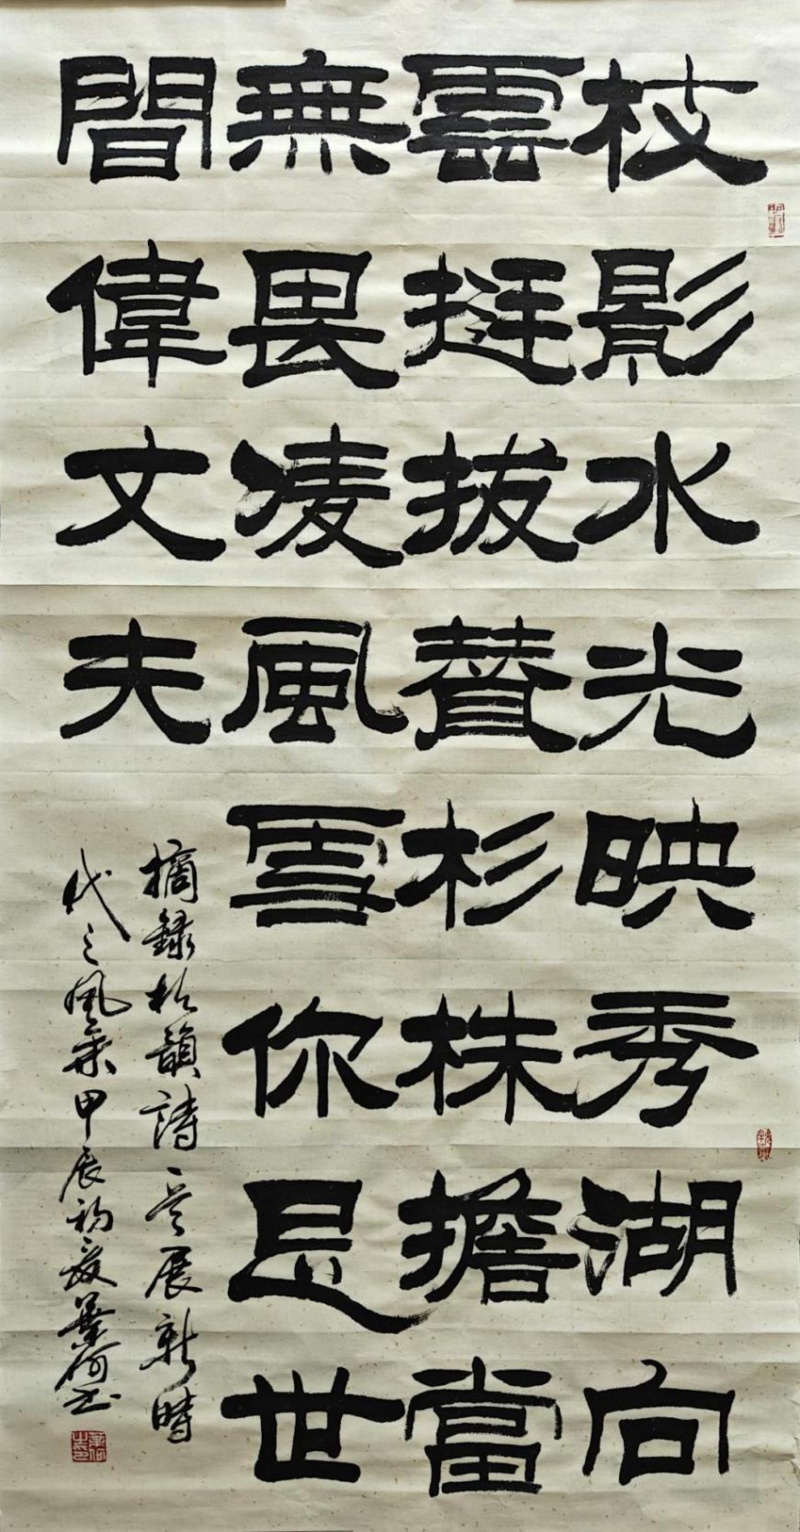 枝影水光映秀湖向
雲挺拔贊杉株擔當
無畏凌風雪你是世
間偉文夫
摘錄杉韻詩意展新時
代之風采甲辰初夏葉何书